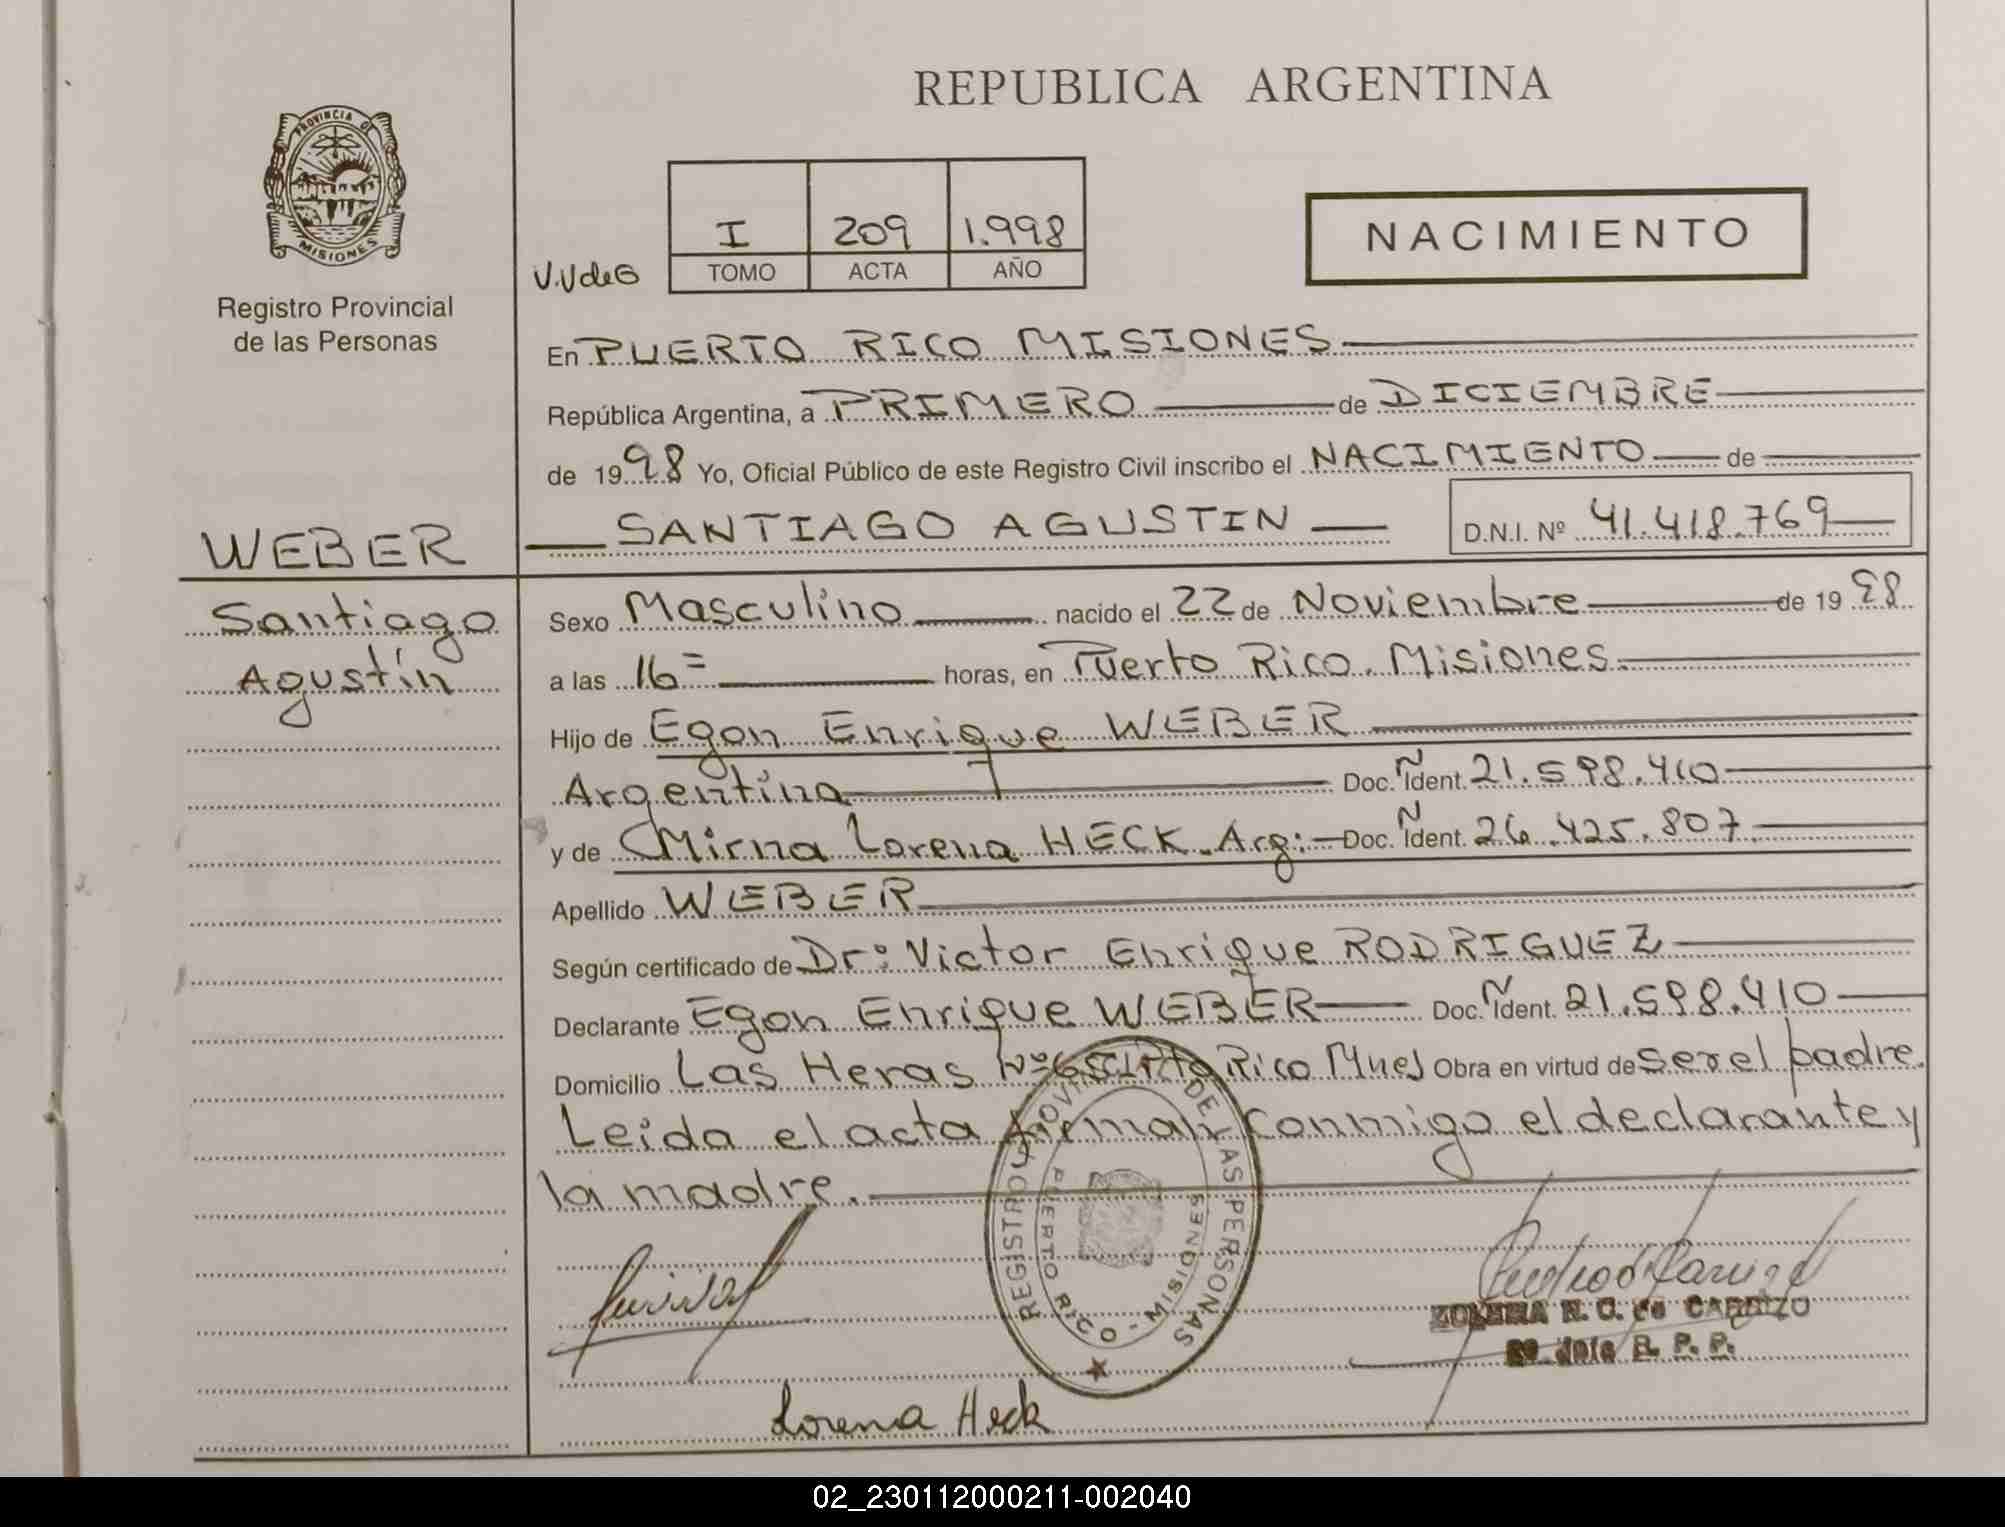 REPUBLICA ARGENTINA
PROVINCIA DE
MISIONES
Registro Provincial
de las Personas
V.V de G
I 209 1.998
TOMO ACTA AÑO
NACIMIENTO
En PUERTO RICO MISIONES
República Argentina, a PRIMERO de DICIEMBRE
de 1998 Yo, Oficial Público de este Registro Civil inscribo el NACIMIENTO de
SANTIAGO AGUSTIN D.N.I. Nº 41.418.769
WEBER
Santiago
Agustín
Sexo Masculino nacido el 22 de Noviembre de 1998
a las 16= horas, en Puerto Rico. Misiones.
Hijo de Egon Enrique WEBER
Argentina Doc. Ident. 21.598.410
y de Mirna Lorena HECK. Arg: Doc. Ident. 26.425.807
Apellido WEBER
Según certificado de Dr: Victor Enrique RODRIGUEZ
Declarante Egon Enrique WEBER Doc. Ident. 21.598.410
Domicilio Las Heras Rico Mnes Obra en virtud de ser el padre.
Leida el acta firman conmigo el declarante y
la madre.
REGISTRO PROVINCIAL DE LAS PERSONAS
PUERTO RICO - MISIONES
N. C. de CARRIZO
R. P. P.
Lorena Heck
02_230112000211-002040